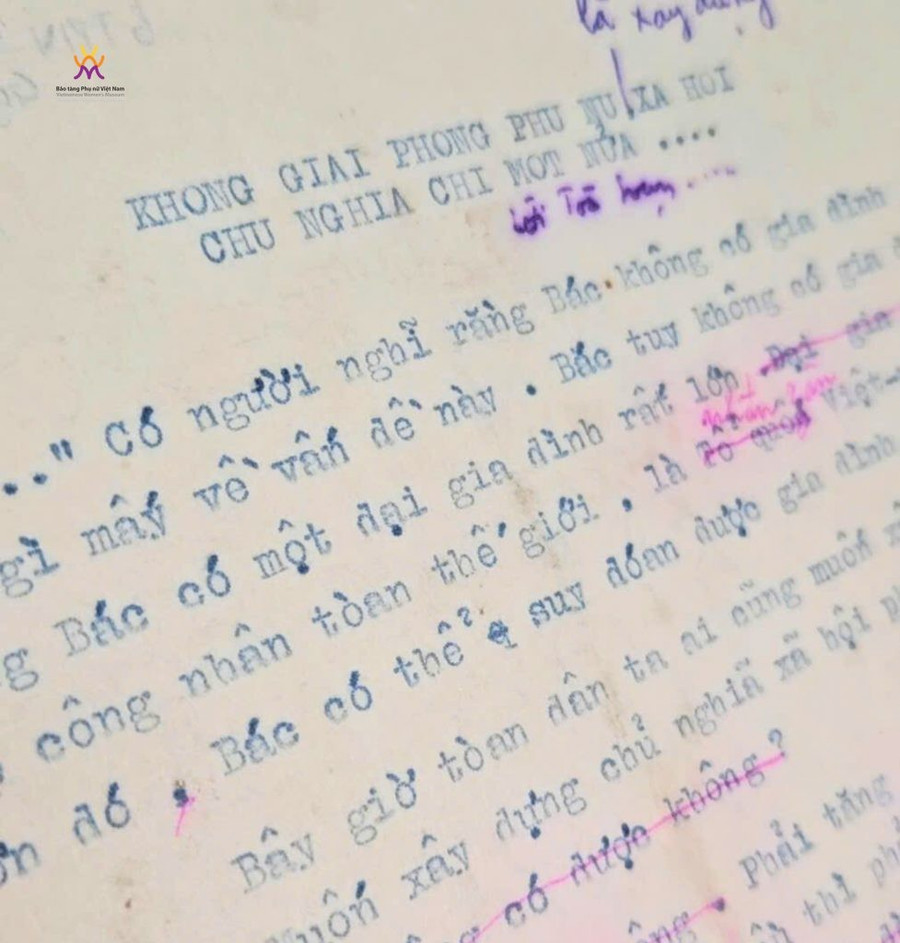 Bảo tàng Phụ nữ Việt Nam
Vietnamese Women's Museum
là xây dựng
KHONG GIAI PHONG PHU NU XA HOI
CHU NGHIA CHI MOT NỬA ....
.." Có người nghĩ rằng Bác không có gia đình
gì mấy về vấn đề này . Bác tuy không có gia đ
g Bác có một đại gia đình rất lớn . Đại gia
công nhân toàn thế giới , là Tổ quốc Việt-
nhân dân
ơn đó , Bác có thể suy đóan được gia đình
Bây giờ tòan dân ta ai cũng muốn x
uốn xây dựng chủ nghiã xã hội ph
g có được không ?
ông . Phải tăng
thì ph